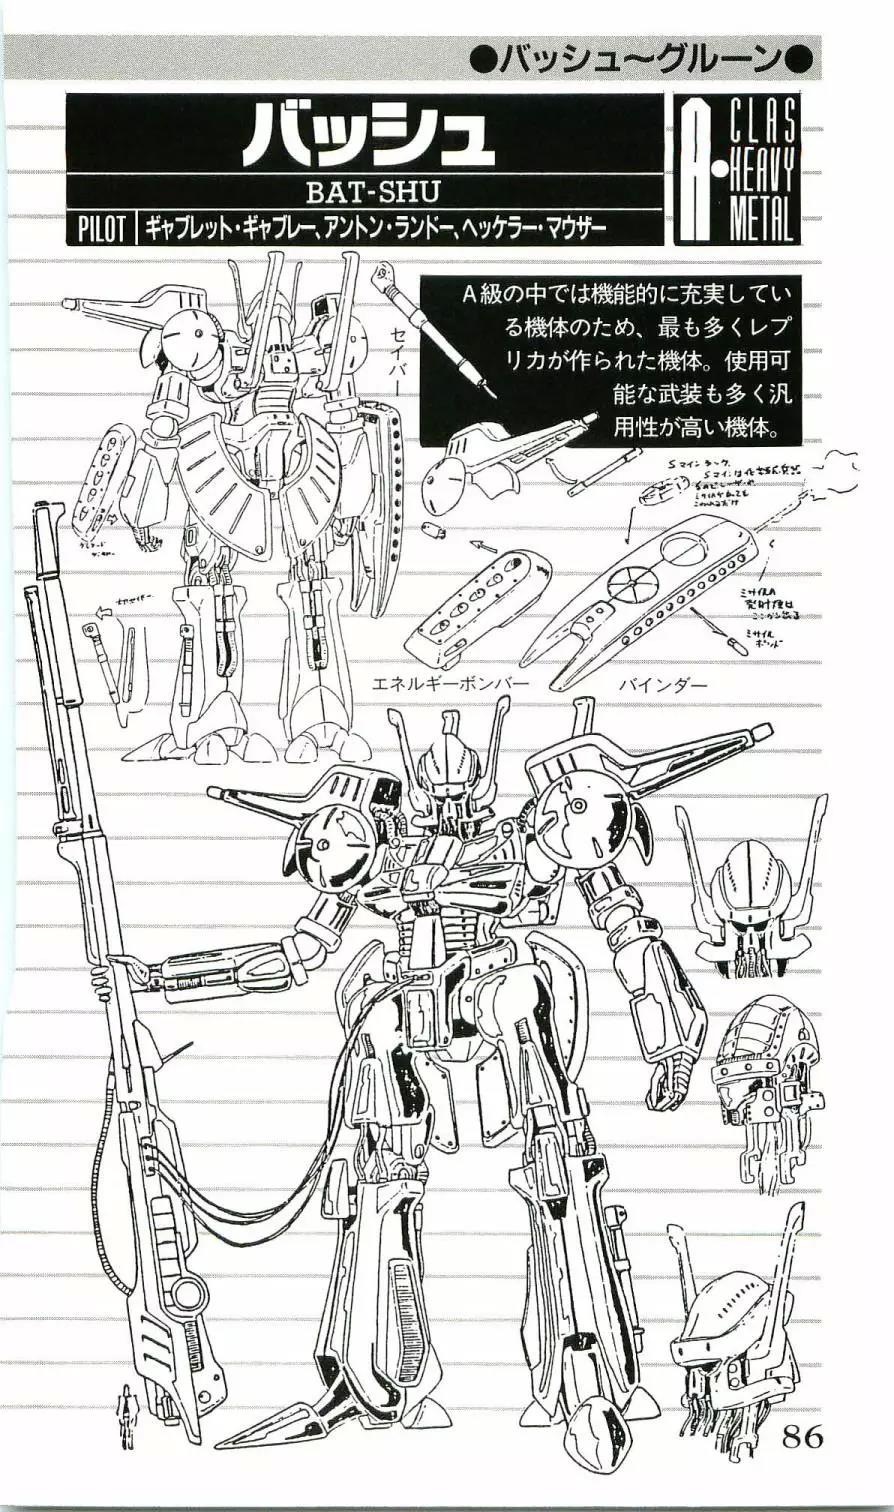 ●バッシュ〜グルーン●
バッシュ
BAT-SHU
PILOT ギャブレット・ギャブレー、アントン・ランドー、ヘッケラー・マウザー
A・CLAS
HEAVY
METAL
A級の中では機能的に充実してい
る機体のため、最も多くレプ
リカが作られた機体。使用可
能な武装も多く汎
用性が高い機体。
セイバー
Sマインランチ
ミサイルの
発射煙は
ここから出る
ミサイル
ポッド
エネルギーボンバー
バインダー
86